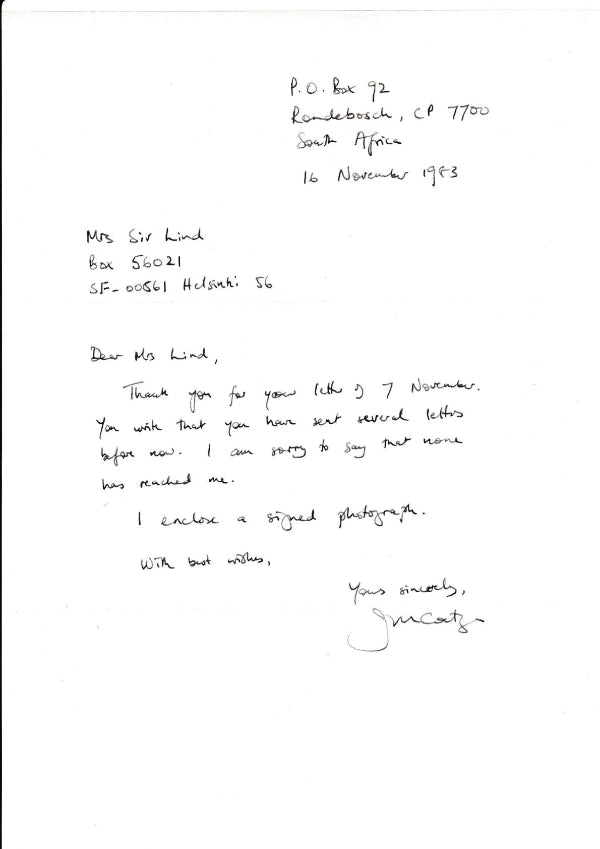 P.O. Box 92
Rondebosch, CP 7700
South Africa
16 November 1983
Mrs Siv Lind
Box 56021
SF-00561 Helsinki 56
Dear Mrs Lind,
Thank you for your letter of 7 November.
You write that you have sent several letters
before now. I am sorry to say that none
has reached me.
I enclose a signed photograph.
With best wishes,
Yours sincerely,
JM Coetzee